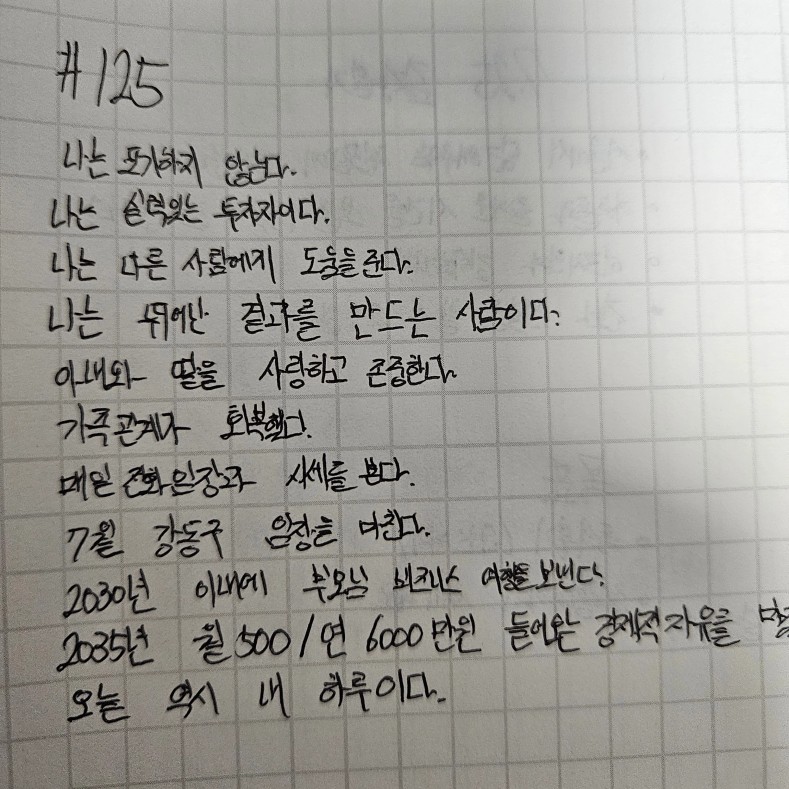 #125
나는 포기하지 않는다.
나는 실력있는 투자자이다.
나는 다른 사람에게 도움을 준다.
나는 뛰어난 결과를 만드는 사람이다.
아내와 딸을 사랑하고 존중한다.
가족관계가 회복했다.
매일 전화임장과 시세를 본다.
7월 강동구 임장을 마친다.
2030년 이내에 부모님 비즈니스 여행을 보낸다.
2035년 월500/연 6000만원 들어오는 경제적 자유를
오늘 역시 내 하루이다.